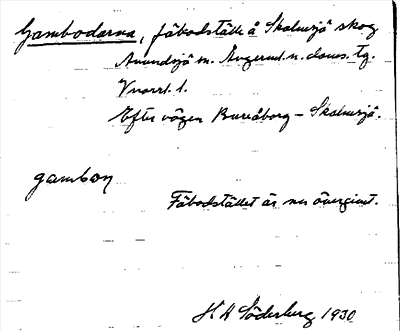 Gambodarna, fäbodställe å Skalmsjö skog
Anundsjö sn. Ångerml. n. doms. tg.
Vnorrl. l.
Efter vägen Bureåborg – Skalmsjö.
gambon
Fäbodstället är nu övergivet.
K A Söderberg 1930